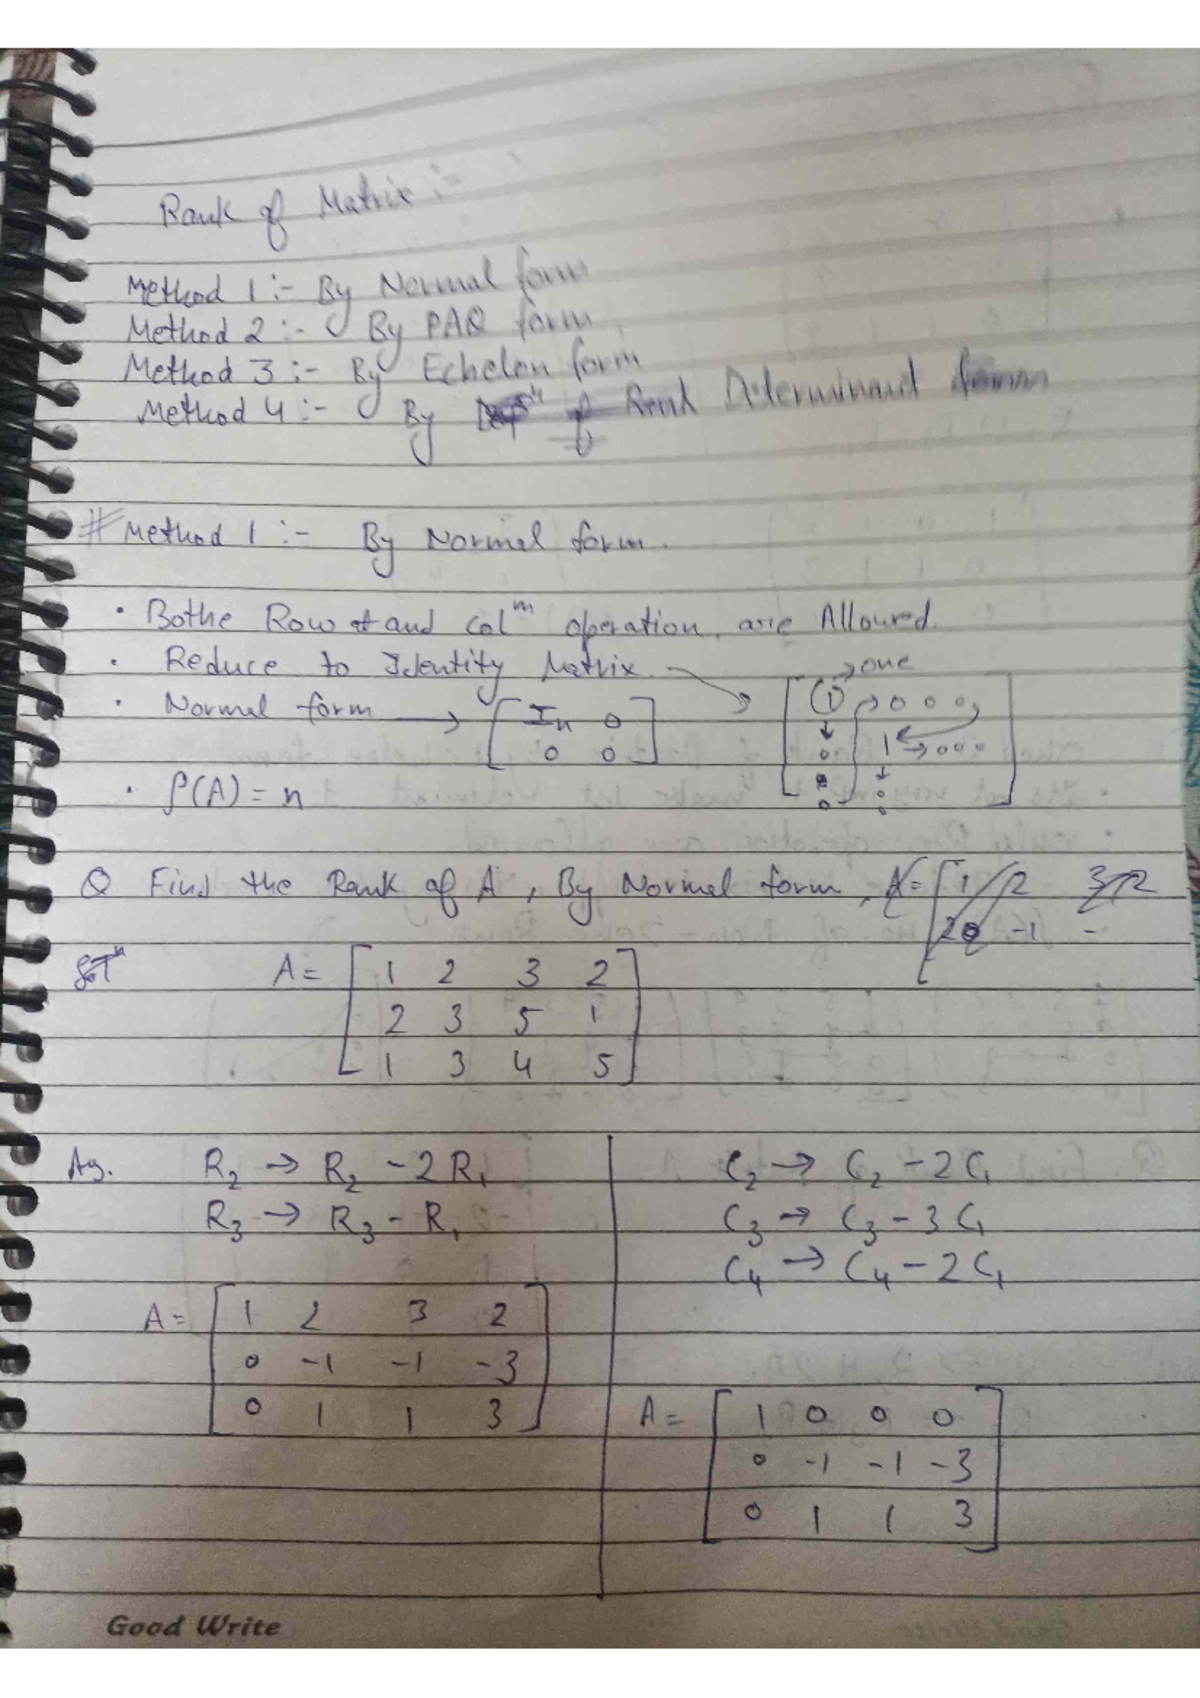 Rank of Matrix :-
Method 1 :- By Normal form
Method 2 :- By PAQ form
Method 3 :- By Echelon form
Method 4 :- By Determinant
# Method 1 :- By Normal form.
· Bothe Row and colᵐ operation are Allowed.
· Reduce to Identity Matrix → one
· Normal form → [ Iₙ 0
0 0 ]
[ 1 → 0 0 0
0 1 → 0 0 0
0 0
0 0 ]
· ρ(A) = n
Q Find the Rank of A, By Normal form, A = [ 1 2 3 2
-1 -
Solⁿ A = [ 1 2 3 2
2 3 5 1
1 3 4 5 ]
R₂ → R₂ - 2R₁
R₃ → R₃ - R₁
A = [ 1 2 3 2
0 -1 -1 -3
0 1 1 3 ]
C₂ → C₂ - 2C₁
C₃ → C₃ - 3C₁
C₄ → C₄ - 2C₁
A = [ 1 0 0 0
0 -1 -1 -3
0 1 1 3 ]
Good Write